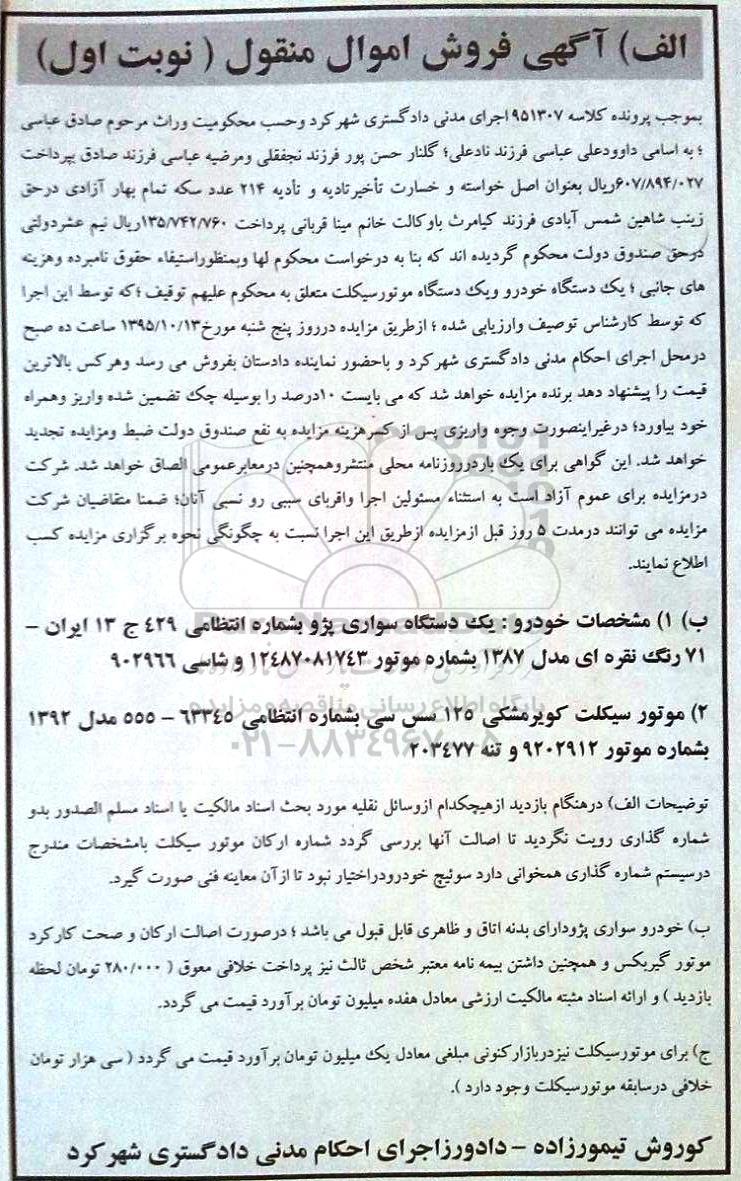 الف) آگهی فروش اموال منقول ( نوبت اول)
بموجب پرونده کلاسه ۹۵۱۳۰۷ اجرای مدنی دادگستری شهرکرد وحسب محکومیت وراث مرحوم صادق عباسی
؛ به اسامی داوودعلی عباسی فرزند نادعلی؛ گلنار حسن پور فرزند نجفقلی ومرضیه عباسی فرزند صادق بپرداخت
۶۰۷/۸۹۴/۰۲۷ریال بعنوان اصل خواسته و خسارت تأخیرتادیه و تأدیه ۲۱۴ عدد سکه تمام بهار آزادی درحق
زینب شاهین شمس آبادی فرزند کیامرث باوکالت خانم مینا قربانی پرداخت ۱۳۵/۷۴۲/۷۶۰ریال نیم عشردولتی
درحق صندوق دولت محکوم گردیده اند که بنا به درخواست محکوم لها وبمنظوراستیفاء حقوق نامبرده وهزینه
های جانبی ؛ یک دستگاه خودرو ویک دستگاه موتورسیکلت متعلق به محکوم علیهم توقیف ؛که توسط این اجرا
که توسط کارشناس توصیف وارزیابی شده ؛ ازطریق مزایده درروز پنج شنبه مورخ۱۳۹۵/۱۰/۱۳ ساعت ده صبح
درمحل اجرای احکام مدنی دادگستری شهرکرد و باحضور نماینده دادستان بفروش می رسد وهرکس بالاترین
قیمت را پیشنهاد دهد برنده مزایده خواهد شد که می بایست ۱۰درصد را بوسیله چک تضمین شده واریز وهمراه
خود بیاورد؛ درغیراینصورت وجوه واریزی پس از کسرهزینه مزایده به نفع صندوق دولت ضبط ومزایده تجدید
خواهد شد. این گواهی برای یک باردرروزنامه محلی منتشروهمچنین درمعابرعمومی الصاق خواهد شد. شرکت
درمزایده برای عموم آزاد است به استثناء مسئولین اجرا واقربای سببی رو نسبی آنان؛ ضمنا متقاضیان شرکت
مزایده می توانند درمدت ۵ روز قبل ازمزایده ازطریق این اجرا نسبت به چگونگی نحوه برگزاری مزایده کسب
اطلاع نمایند.
ب) ۱) مشخصات خودرو : یک دستگاه سواری پژو بشماره انتظامی ۴۲۹ ج ۱۳ ایران –
۷۱ رنگ نقره ای مدل ۱۳۸۷ بشماره موتور ۱۲۴۸۷۰۸۱۷۴۳ و شاسی ۹۰۲۹۶۶
۲) موتور سیکلت کویرمشکی ۱۲۵ سس سی بشماره انتظامی ۶۳۳۴۵ – ۵۵۵ مدل ۱۳۹۲
بشماره موتور ۹۲۰۲۹۱۲ و تنه ۲۰۳۴۷۷
پایگاه اطلاع رسانی مناقصه و مزایده
۰۲۱-۸۸۳۴۹۶۷۰-۵
توضیحات الف) درهنگام بازدید ازهیچکدام ازوسائل نقلیه مورد بحث اسناد مالکیت یا اسناد مسلم الصدور بدو
شماره گذاری رویت نگردید تا اصالت آنها بررسی گردد شماره ارکان موتور سیکلت بامشخصات مندرج
درسیستم شماره گذاری همخوانی دارد سوئیچ خودرودراختیار نبود تا ازآن معاینه فنی صورت گیرد.
ب) خودرو سواری پژودارای بدنه اتاق و ظاهری قابل قبول می باشد ؛ درصورت اصالت ارکان و صحت کارکرد
موتور گیربکس و همچنین داشتن بیمه نامه معتبر شخص ثالث نیز پرداخت خلافی معوق ( ۲۸۰/۰۰۰ تومان لحظه
بازدید ) و ارائه اسناد مثبته مالکیت ارزشی معادل هفده میلیون تومان برآورد قیمت می گردد.
ج) برای موتورسیکلت نیزدربازارکنونی مبلغی معادل یک میلیون تومان برآورد قیمت می گردد ( سی هزار تومان
خلافی درسابقه موتورسیکلت وجود دارد ).
کوروش تیمورزاده – دادورزاجرای احکام مدنی دادگستری شهرکرد